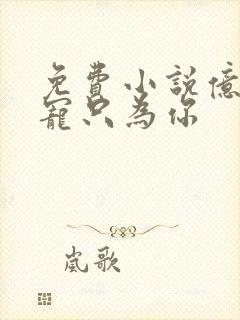 免費小説億
寵只為你
嵐歌